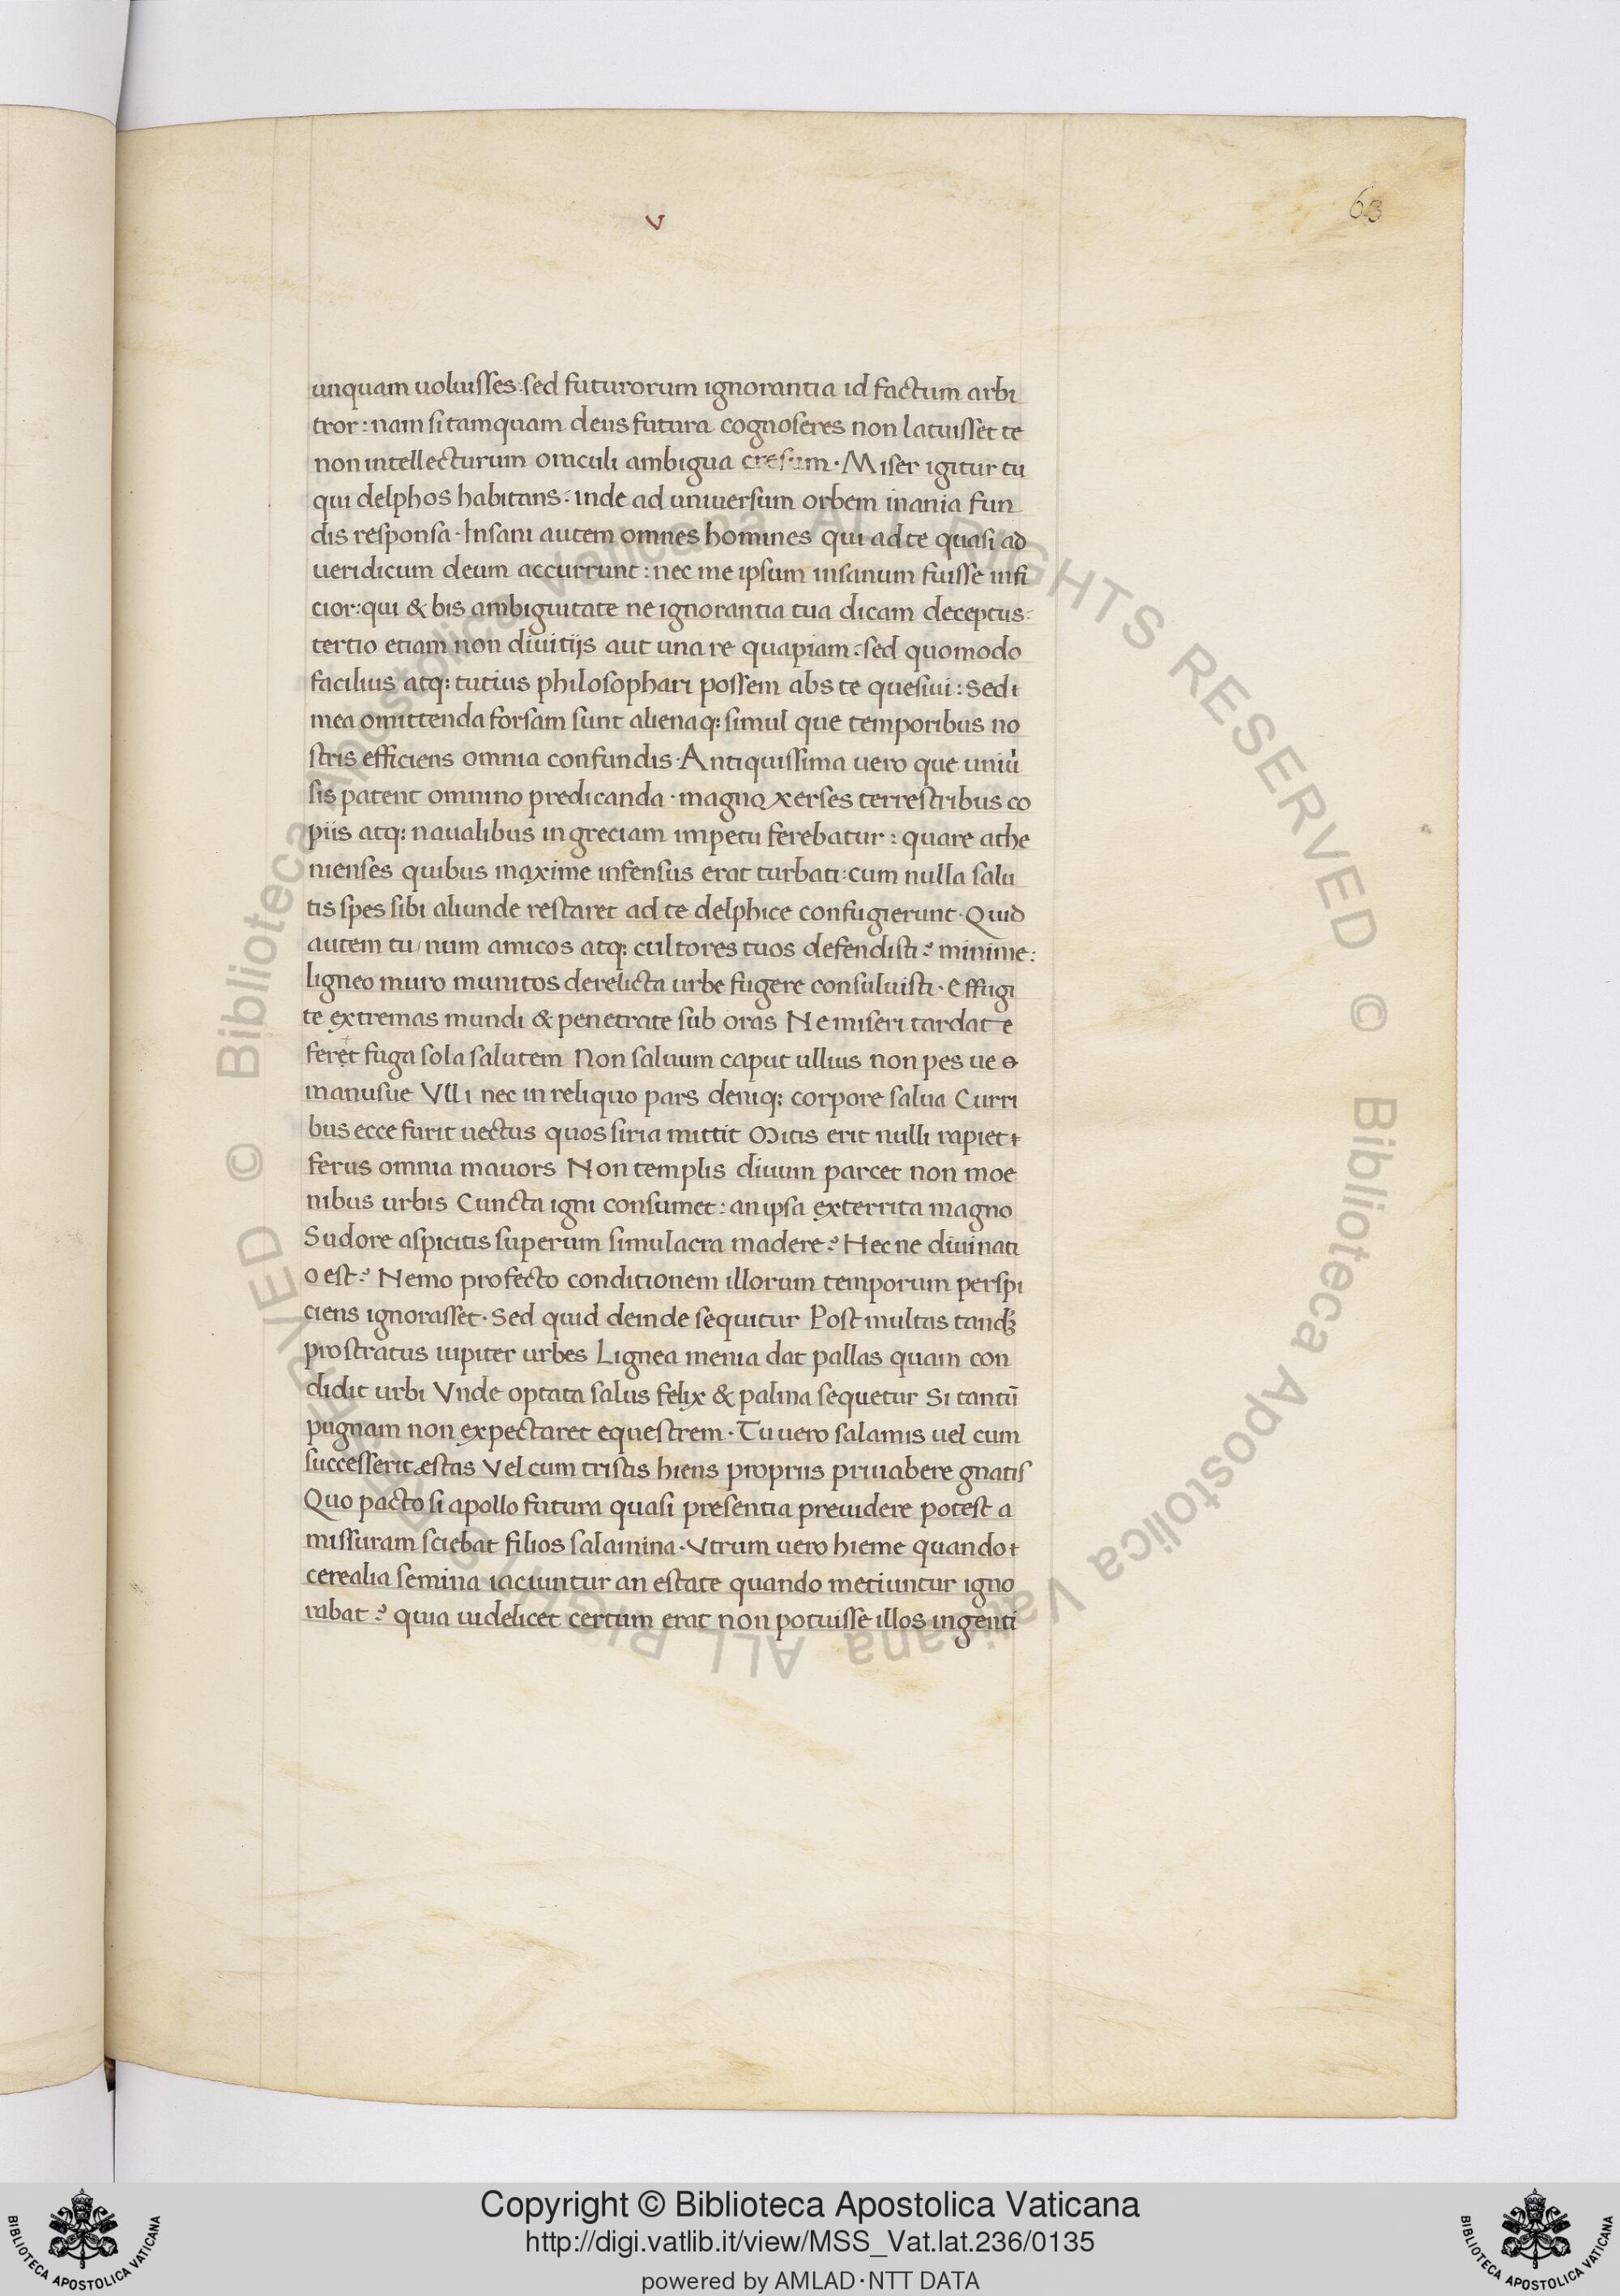 v
63
unquam uoluisses: sed futurorum ignorantia id factum arbi
tror: nam si tamquam deus futura cognosceres non latuisset te
non intellecturum oraculi ambigua cresum. Miser igitur tu
qui delphos habitans: inde ad uniuersum orbem inania fun
dis responsa. Insani autem omnes homines qui ad te quasi ad
ueridicum deum accurrunt: nec me ipsum insanum fuisse infi
cior: qui & bis ambiguitate ne ignorantia tua dicam deceptus:
tertio etiam non diuitijs aut una re quapiam: sed quomodo
facilius atq: tutius philosophari possem abs te quesiui: Sed
mea omittenda forsam sunt alienaq: simul que temporibus no
stris efficiens omnia confundis. Antiquissima uero que uniu̇
sis patent omnino predicanda. magnꝰ xerses terrestribus co
piis atq: naualibus in greciam impetu ferebatur: quare athe
nienses quibus maxime infensus erat turbati: cum nulla salu
tis spes sibi aliunde restaret ad te delphice confugierunt. Quid
autem tu/ num amicos atq: cultores tuos defendisti? minime:
ligneo muro munitos derelicta urbe fugere consuluisti. Effugi
te extremas mundi & penetrate sub oras Ne miseri tardate
feret fuga sola salutem Non saluum caput ullius non pes ue
manusue Vlli nec in reliquo pars deniq: corpore salua Curri
bus ecce furit uectus quos siria mittit Mitis erit nulli rapiet
ferus omnia mauors Non templis diuum parcet non moe
nibus urbis Cuncta igni consumet: an ipsa exterrita magno
Sudore aspicitis superum simulacra madere? Hec ne diuinati
o est? Nemo profecto conditionem illorum temporum perspi
ciens ignorasset. Sed quid deinde sequitur Post multas tandꝫ
prostratus iupiter urbes Lignea menia dat pallas quam con
didit urbi Vnde optata salus felix & palma sequetur Si tantū
pugnam non expectaret equestrem. Tu uero salamis uel cum
successerit æstas Vel cum tristis hiens propriis priuabere gnatis
Quo pacto si apollo futura quasi presentia preuidere potest a
missuram sciebat filios salamina. Vtrum uero hieme quando
cerealia semina iaciuntur an estate quando metiuntur igno
rabat? quia uidelicet certum erat non potuisse illos ingenti
Copyright © Biblioteca Apostolica Vaticana
http://digi.vatlib.it/view/MSS_Vat.lat.236/0135
powered by AMLAD·NTT DATA
BIBLIOTECA APOSTOLICA VATICANA
BIBLIOTECA APOSTOLICA VATICANA
© Biblioteca Apostolica Vaticana ALL RIGHTS RESERVED
© Biblioteca Apostolica Vaticana ALL RIGHTS RESERVED